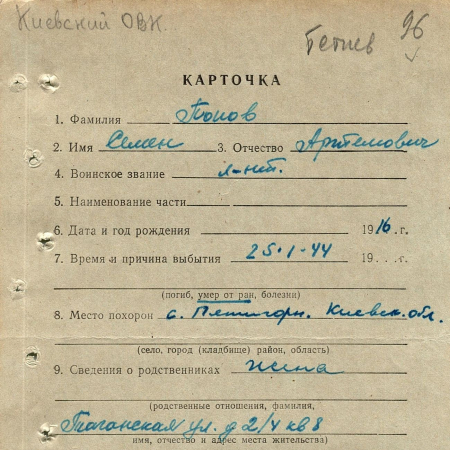 Киевский ОВК.
Тетиев 96
КАРТОЧКА
1. Фамилия Попов
2. Имя Семен 3. Отчество Артемович
4. Воинское звание л-нт.
5. Наименование части
6. Дата и год рождения 1916.г.
7. Время и причина выбытия 25.1-44 19...г.
(погиб, умер от ран, болезни)
8. Место похорон с. Пятигоры. Киевск. обл.
(село, город (кладбище) район, область)
9. Сведения о родственниках жена
(родственные отношения, фамилия,
Таганская ул. д 2/4 кв 8
имя, отчество и адрес места жительства)